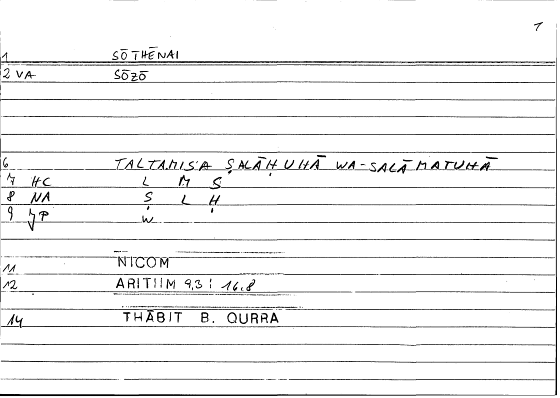 1
1 SŌTHĒNAI
2 VA SŌZŌ
6 TALTAMISA ṢALĀḤUHĀ WA-SALĀMATUHĀ
7 HC L M S
8 NA Ṣ L Ḥ
9 JP W
11 NICOM
12 ARITIIM 9,3 ; 16.8
14 THĀBIT B. QURRA